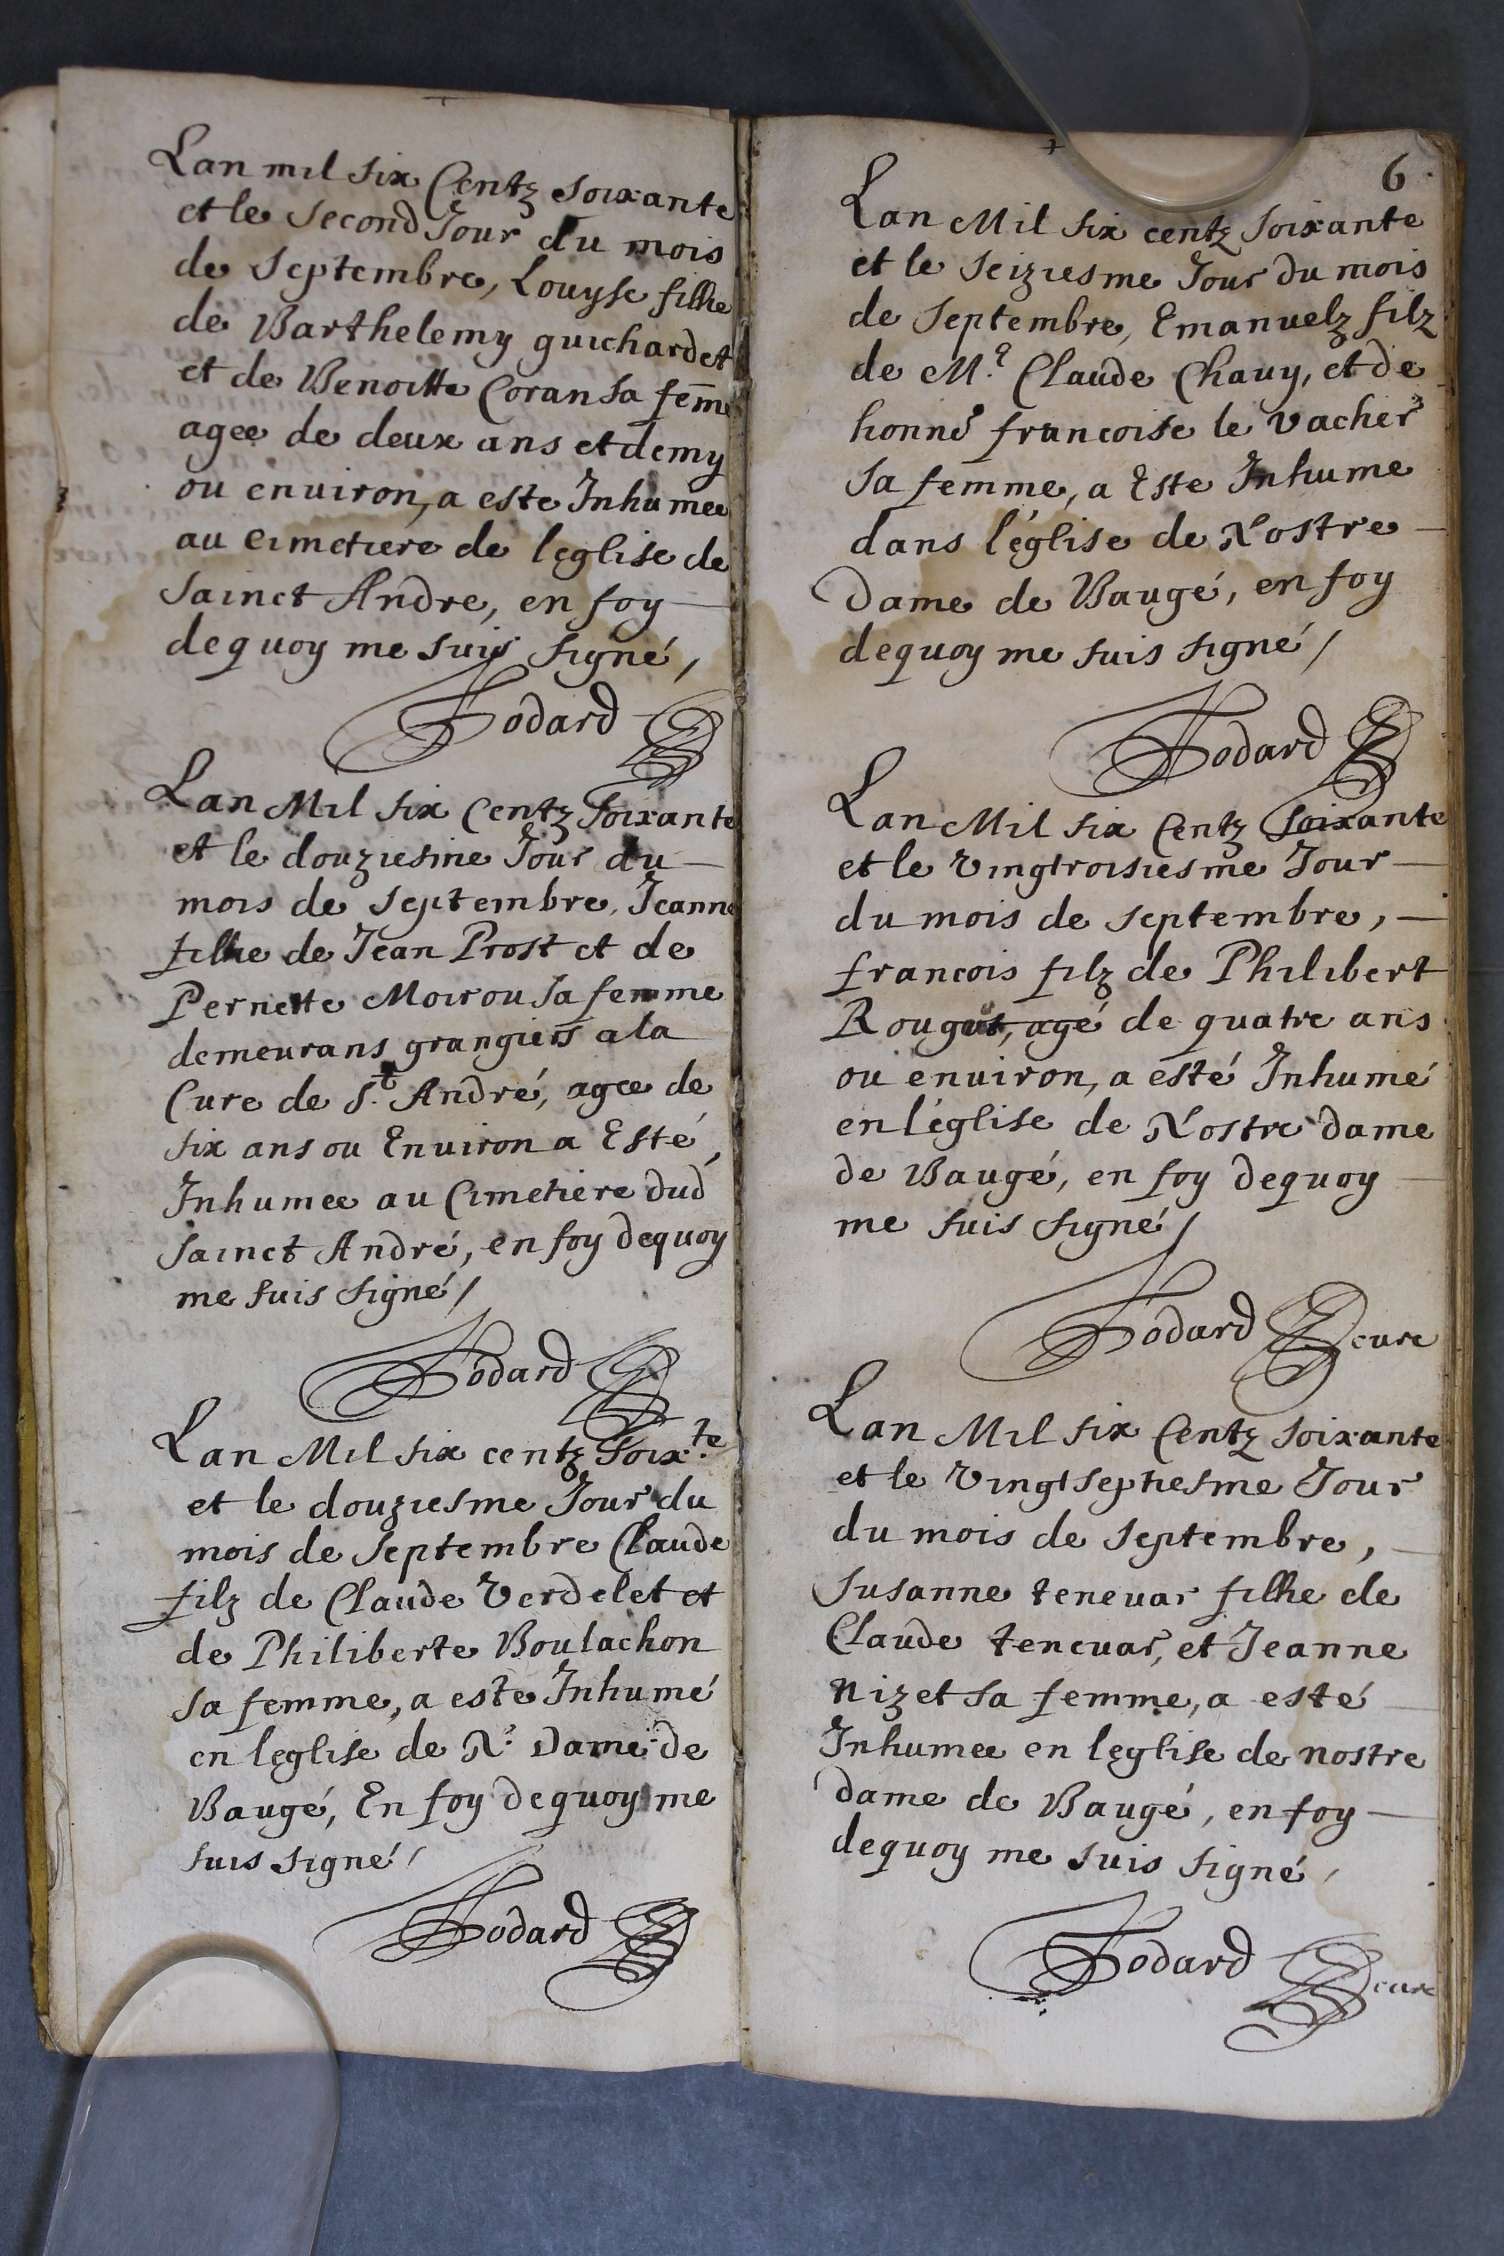 Lan mil six Centz soixante
et le second Jour du mois
de Septembre, Louyse filhe
de Barthelemy guichardet
et de Benoitte Coran sa fem̄e
agee de deux ans et demy
ou enuiron, a este Inhumee
au cimetiere de leglise de
Sainct Andre, en foy
dequoy me suis signé,
Fodard
Lan Mil six Centz soixante
et le douziesme Jour du
mois de Septembre, Jeanne
filhe de Jean Prost et de
Pernette Moirou sa femme
demeurans grangiers a la
Cure de St. André, agee de
six ans ou Enuiron a Esté,
Inhumee au Cimetiere dud
sainct André, en foy dequoy
me suis signé /
Fodard
Lan Mil six centz soix.te
et le douziesme Jour du
mois de Septembre Claude
filz de Claude Verdelet et
de Philiberte Boulachon
sa femme, a este Inhumé
en leglise de Ne Dame de
Baugé, En foy dequoy me
suis signé /
Fodard
6
Lan Mil six centz soixante
et le seiziesme Jour du mois
de Septembre, Emanuelz filz
de Me Claude Chauy, et de
honne francoise le vacher
sa femme, a Este Inhume
dans l'église de Nostre
Dame de Baugé, en foy
dequoy me suis signé /
Fodard
Lan Mil six Centz soixante
et le Vingtroisiesme Jour
du mois de septembre,
francois filz de Philibert
Rouget, agé de quatre ans
ou enuiron, a esté Inhumé
en l'église de Nostre dame
de Baugé, en foy dequoy
me suis signé /
Fodard cure
Lan Mil six Centz soixante
et le Vingtseptiesme Jour
du mois de septembre,
Susanne teneuar filhe de
Claude teneuar, et Jeanne
nizet sa femme, a esté
Inhumee en leglise de nostre
dame de Baugé, en foy
dequoy me suis signé /
Fodard cure